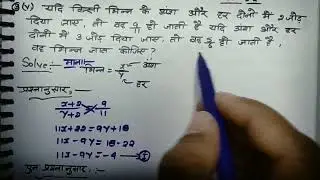 3(v) यदि किसी भिन्न के अंश और हर दोनों में 2 जोड़
दिया जाए, तो वह 9/11 हो जाती है यदि अंश और हर
दोनों में 3 जोड़ दिया जाए, तो वह 5/6 हो जाती है,
वह भिन्न ज्ञात कीजिए?
Solve: माना भिन्न = x/y अंश
हर
प्रश्नानुसार,
x+2/y+2 = 9/11
11x+22 = 9y+18
11x-9y = 18-22
11x-9y = -4
पुनः प्रश्नानुसार,